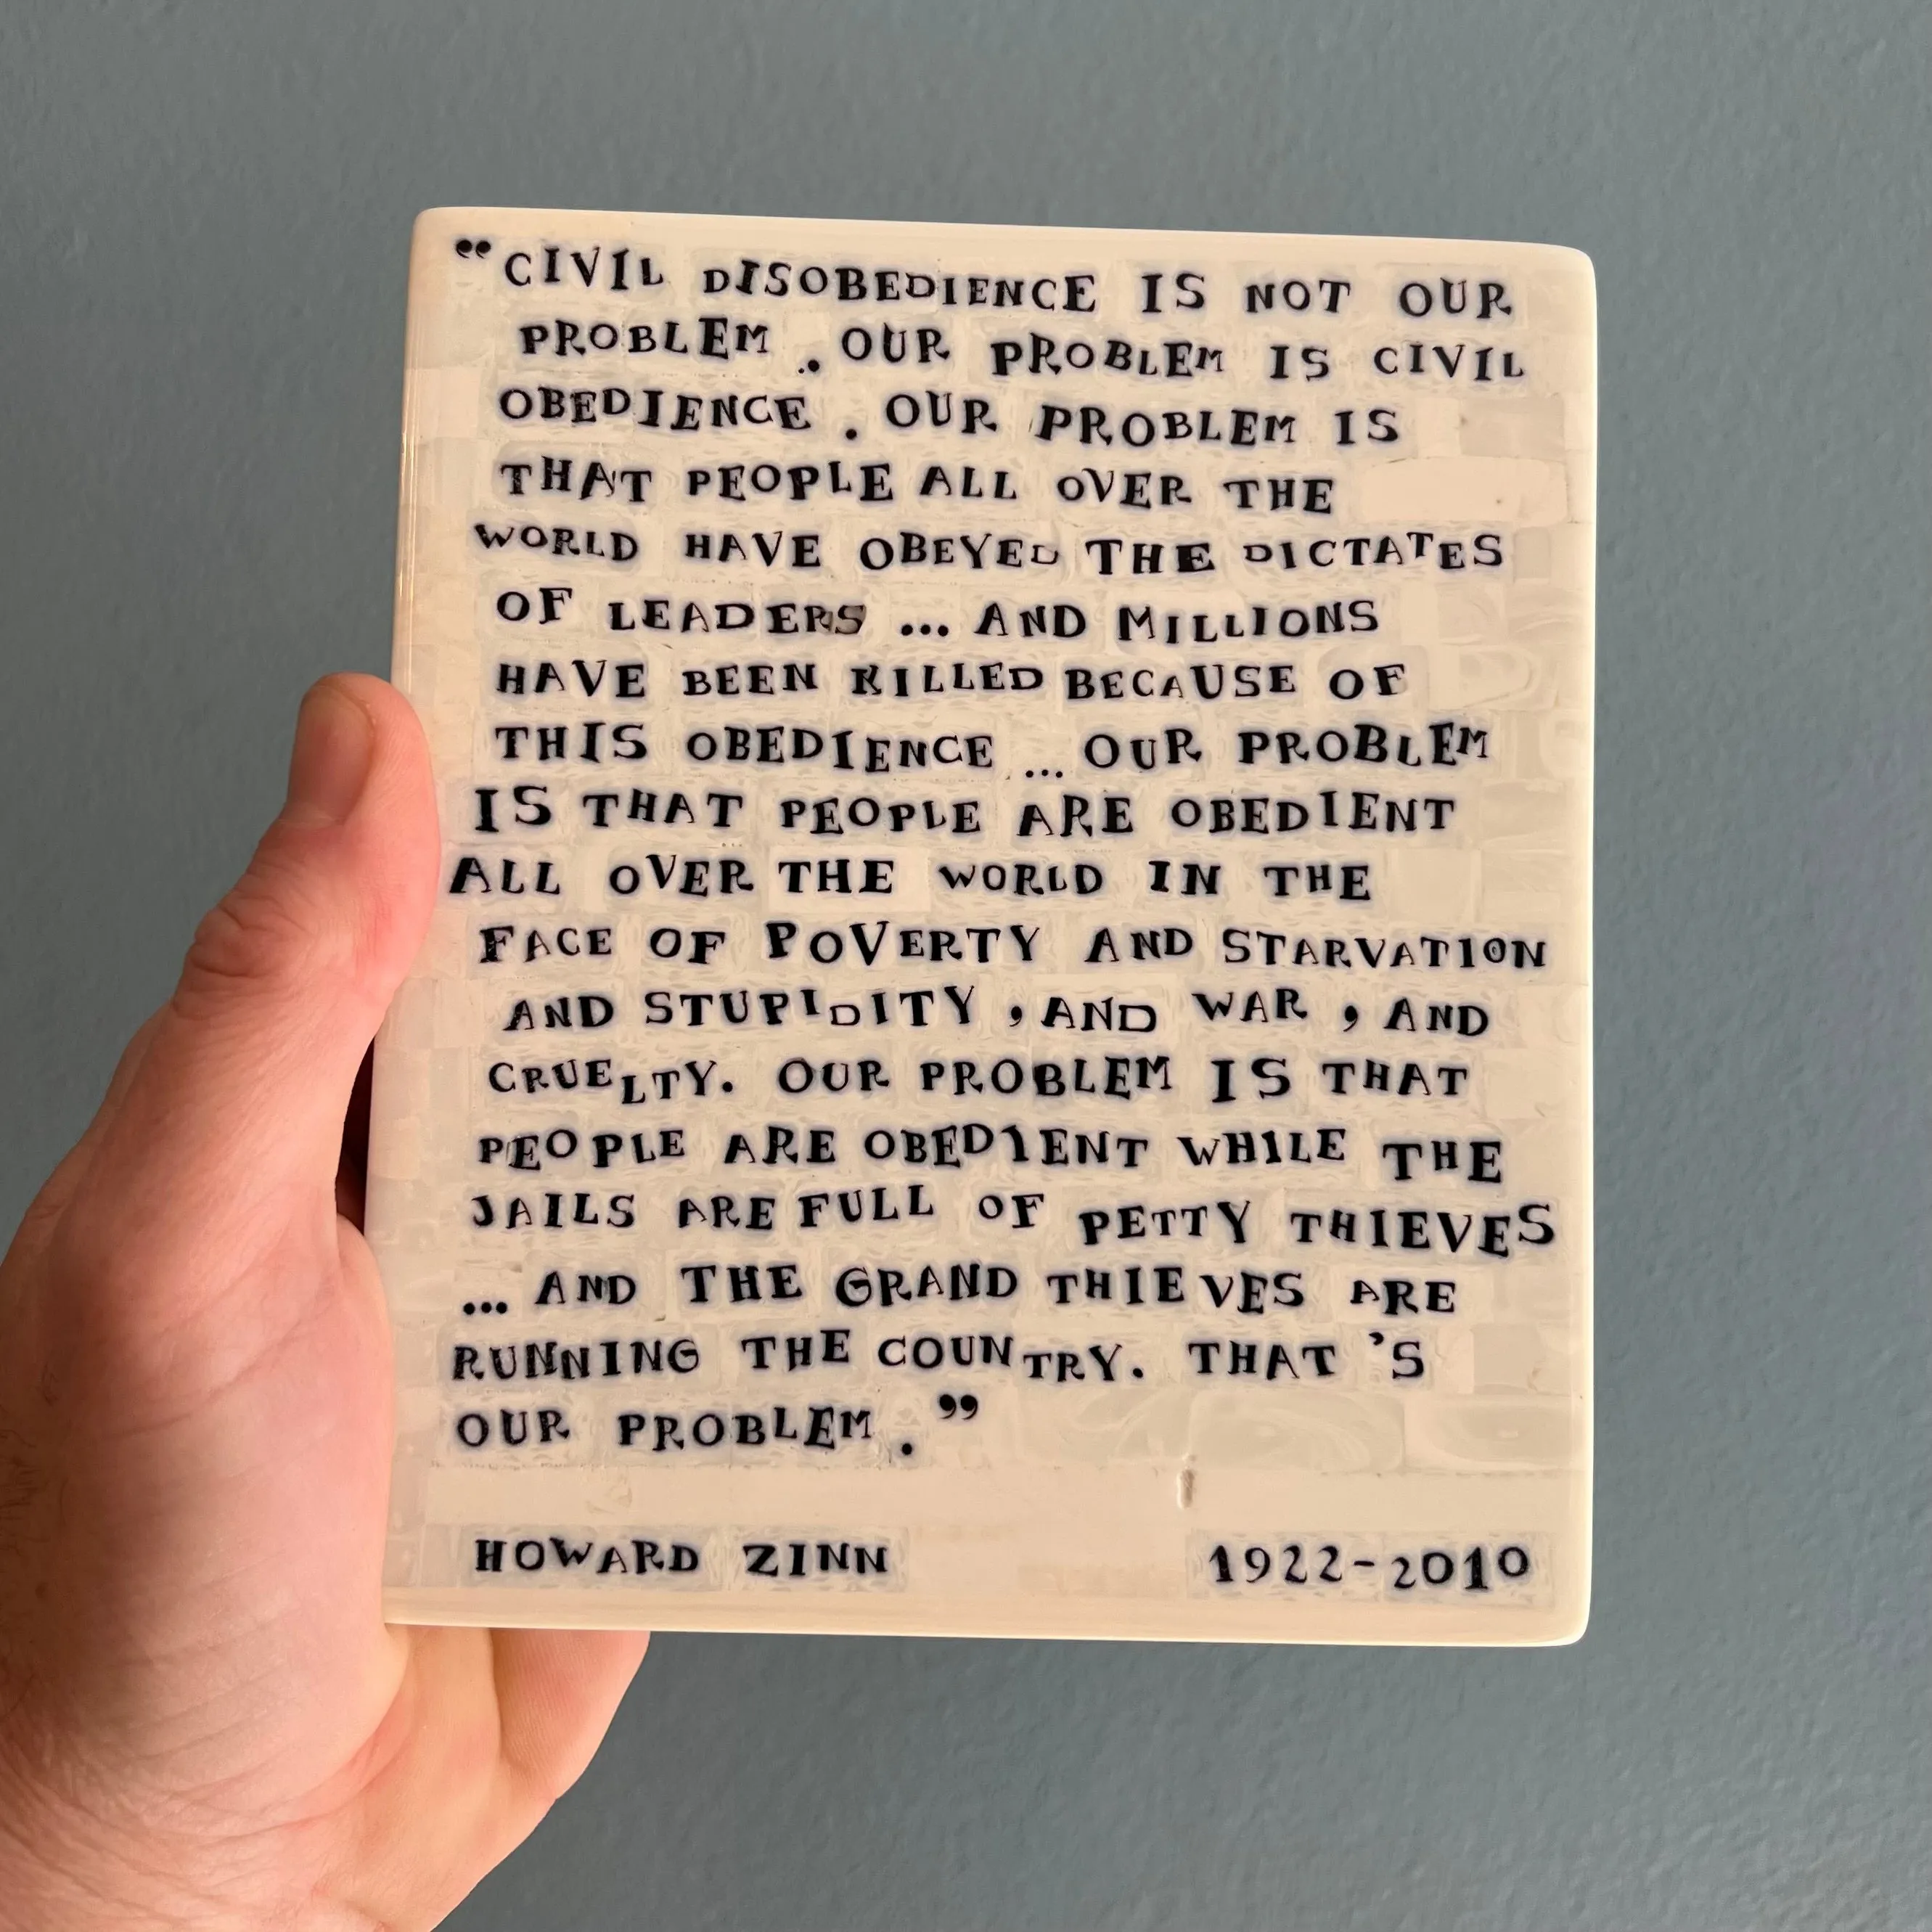 “CIVIL DISOBEDIENCE IS NOT OUR
PROBLEM. OUR PROBLEM IS CIVIL
OBEDIENCE. OUR PROBLEM IS
THAT PEOPLE ALL OVER THE
WORLD HAVE OBEYED THE DICTATES
OF LEADERS ... AND MILLIONS
HAVE BEEN KILLED BECAUSE OF
THIS OBEDIENCE ... OUR PROBLEM
IS THAT PEOPLE ARE OBEDIENT
ALL OVER THE WORLD IN THE
FACE OF POVERTY AND STARVATION
AND STUPIDITY, AND WAR, AND
CRUELTY. OUR PROBLEM IS THAT
PEOPLE ARE OBEDIENT WHILE THE
JAILS ARE FULL OF PETTY THIEVES
... AND THE GRAND THIEVES ARE
RUNNING THE COUNTRY. THAT'S
OUR PROBLEM.”
HOWARD ZINN 1922-2010